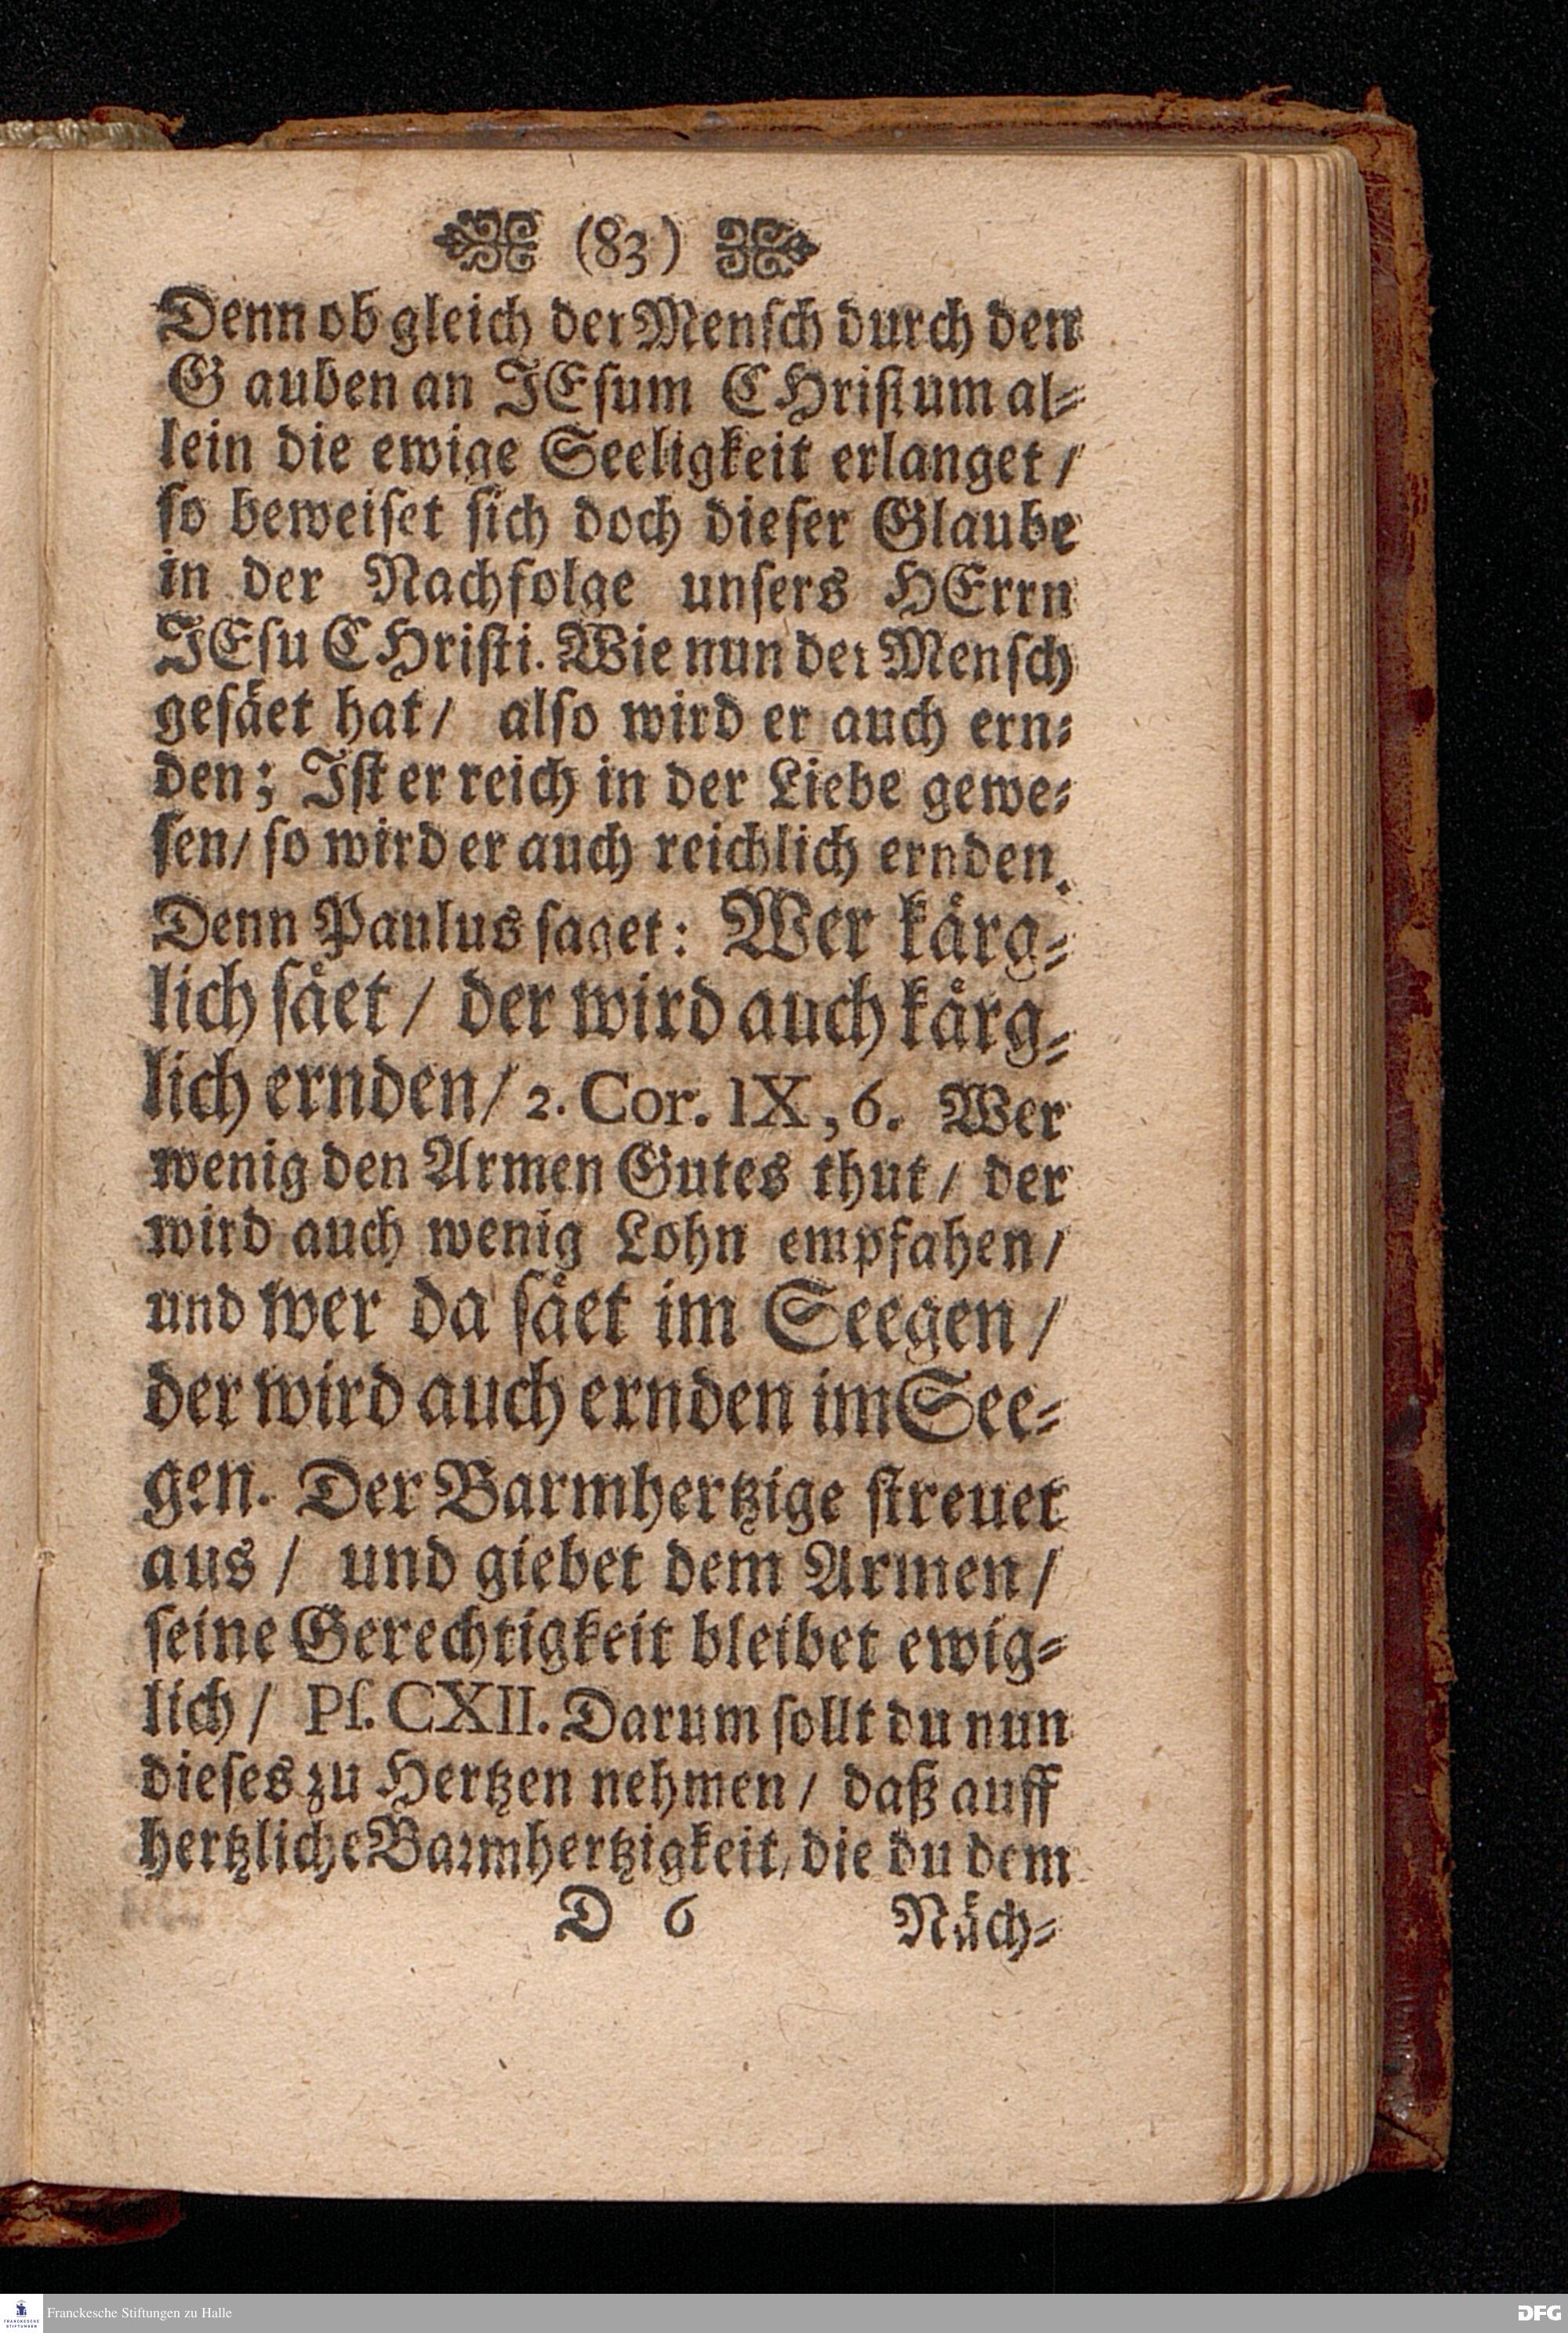 (83)
Denn ob gleich der Mensch durch den
G auben an JEsum CHristum al-
lein die ewige Seeligkeit erlanget /
so beweiset sich doch dieser Glaube
in der Nachfolge unsers HErrn
JEsu CHristi. Wie nun der Mensch
gesäet hat / also wird er auch ern-
den; Ist er reich in der Liebe gewe-
sen / so wird er auch reichlich ernden.
Denn Paulus saget: Wer kärg-
lich säet / der wird auch kärg-
lich ernden / 2. Cor. IX, 6. Wer
wenig den Armen Gutes thut / der
wird auch wenig Lohn empfahen /
und wer da säet im Seegen /
der wird auch ernden im See-
gen. Der Barmhertzige streuet
aus / und giebet dem Armen /
seine Gerechtigkeit bleibet ewig-
lich / Ps. CXII. Darum sollt du nun
dieses zu Hertzen nehmen / daß auff
hertzliche Barmhertzigkeit, die du dem
D 6 Näch-
FRANCKESCHE STIFTUNGEN
Franckesche Stiftungen zu Halle
DFG